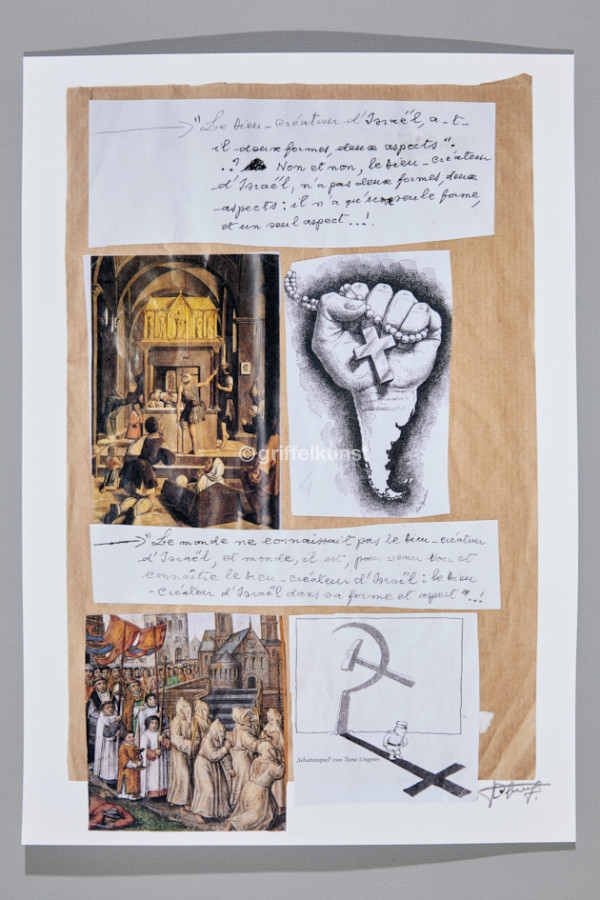 "Le Dieu-créateur d'Israël, a-t-
il deux formes, deux aspects".
..? Non et non, le Dieu-créateur
d'Israël, n'a pas deux formes, deux
aspects: il n'a qu'une seule forme,
et un seul aspect...!
©griffelkunst
"Le monde ne connaissait pas le Dieu-créateur
d'Israël, et monde, il est, pour venir voir et
connaître le Dieu-créateur d'Israël: le Dieu
-créateur d'Israël dans sa forme et aspect"...!
Schattenspiel von Tomi Ungerer